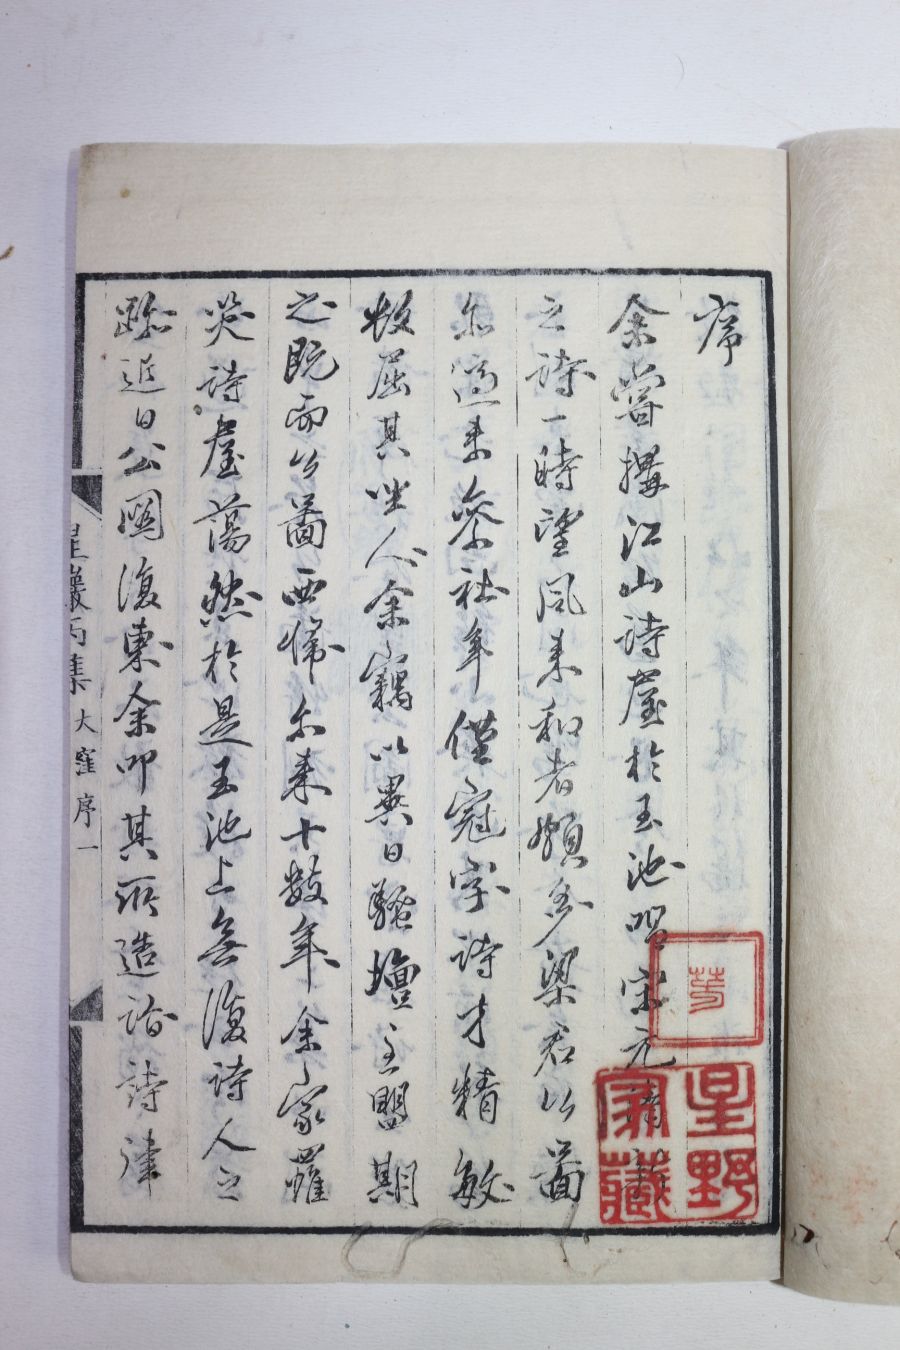 序
余嘗搆江山詩屋於玉池唱宋元清新
之詩一時望風來和者頗多梁君公啚
亦適來參社年僅冠字詩才精敏
屈其坐人余竊以異日騷壇主盟期
之既而公啚西歸尓來十數年余家罹
災詩屋蕩然於是玉池上無復詩人之
跡近日公圖復東余叩其所造詣詩律
星巖丙集 大窪序 一
星野家藏